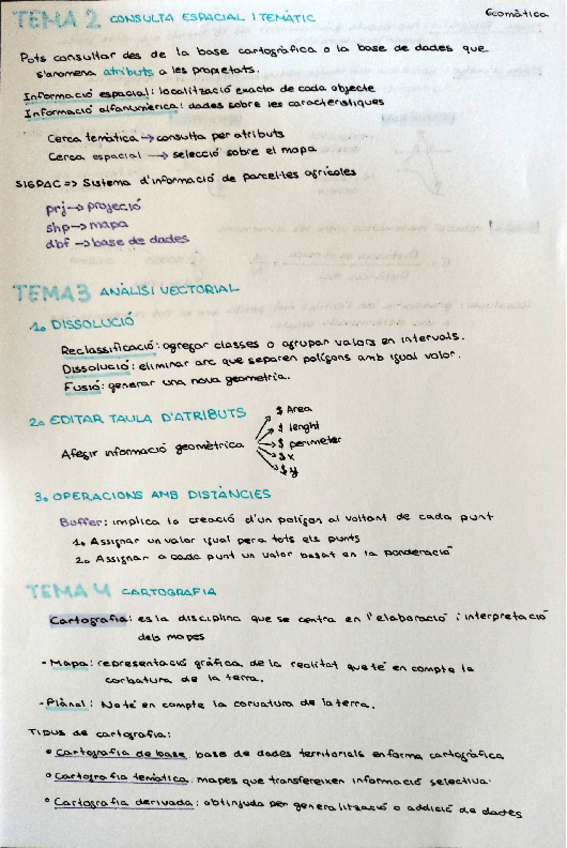 TEMA 2 CONSULTA ESPACIAL I TEMÀTIC
Geomàtica
Pots consultar des de la base cartogràfica o la base de dades que
s'anomena atributs a les propietats.
Informació espacial: localització exacta de cada objecte
Informació alfanumèrica: dades sobre les característiques
Cerca temàtica → consulta per atributs
Cerca espacial → selecció sobre el mapa
SIGPAC => Sistema d'informació de parcel·les agrícoles
prj → projecció
shp → mapa
dbf → base de dades
TEMA 3 ANÀLISI VECTORIAL
1. DISSOLUCIÓ
Reclassificació: agregar classes o agrupar valors en intervals.
Dissolució: eliminar arc que separen polígons amb igual valor.
Fusió: generar una nova geometria.
2. EDITAR TAULA D'ATRIBUTS
Afegir informació geomètrica
$ Area
$ lenght
$ perimeter
$ x
$ y
3. OPERACIONS AMB DISTÀNCIES
Buffer: implica la creació d'un polígon al voltant de cada punt
1. Assignar un valor igual per a tots els punts
2. Assignar a cada punt un valor basat en la ponderació
TEMA 4 CARTOGRAFIA
Cartografia: es la disciplina que se centra en l'elaboració i interpretació
dels mapes
- Mapa: representació gràfica de la realitat que té en compte la
corbatura de la terra.
- Plànol: No té en compte la corvatura de la terra.
TIPUS de cartografia:
• Cartografia de base. base de dades territorials en forma cartogràfica
• Cartografia temàtica. mapes que transfereixen informació selectiva.
• Cartografia derivada: obtinguda per generalització o addició de dades